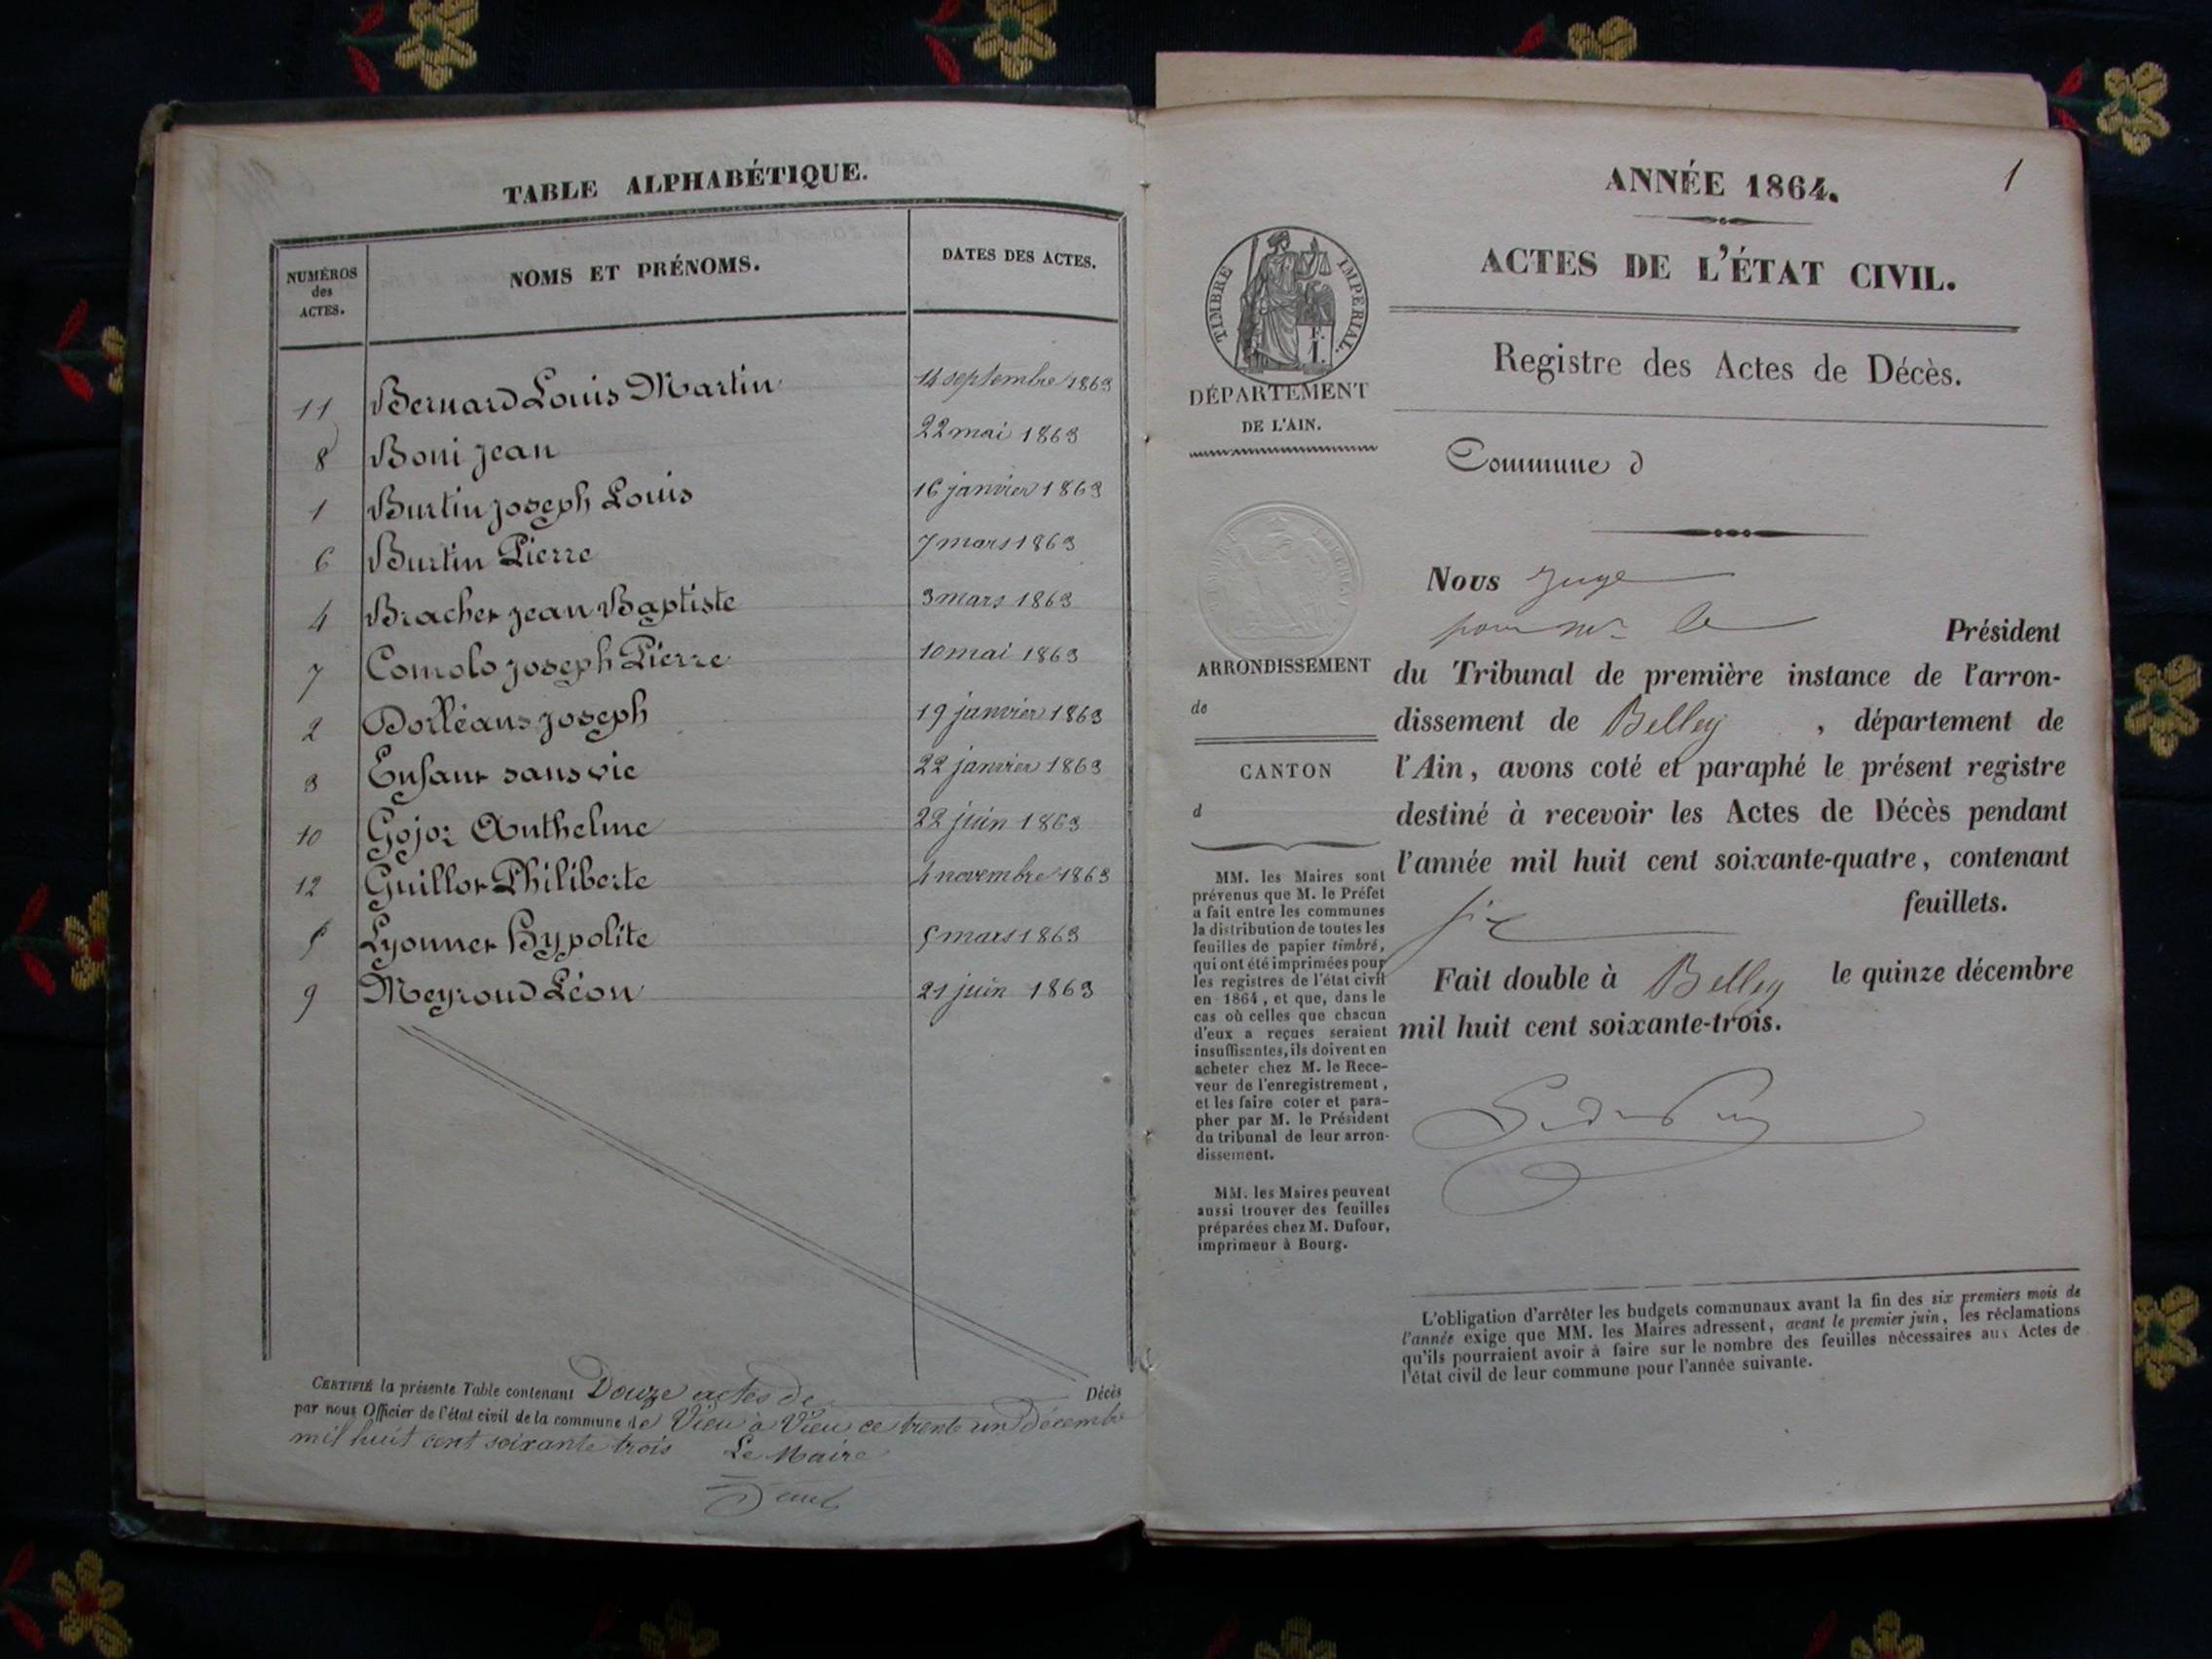 TABLE ALPHABÉTIQUE.
NUMÉROS des ACTES. NOMS ET PRÉNOMS. DATES DES ACTES.
11 Bernard Louis Martin 14 septembre 1863
8 Boni Jean 22 mai 1863
1 Burtin Joseph Louis 16 janvier 1863
6 Burtin Pierre 7 mars 1863
4 Brachet Jean Baptiste 3 mars 1863
7 Comolo Joseph Pierre 10 mai 1863
2 Dorléans Joseph 19 janvier 1863
3 Enfant sans vie 22 janvier 1863
10 Gojoz Anthelme 22 juin 1863
12 Guillot Philiberte 4 novembre 1863
5 Lyonnet Hypolite 5 mars 1863
9 Meyroud Léon 21 juin 1863
CERTIFIÉ la présente Table contenant Douze actes de Décès
par nous Officier de l'état civil de la commune de Vieu à Vieu ce trente un décembre
mil huit cent soixante trois Le Maire
1
ANNÉE 1864.
ACTES DE L'ÉTAT CIVIL.
Registre des Actes de Décès.
TIMBRE IMPÉRIAL.
DÉPARTEMENT
DE L'AIN.
Commune d
Nous Juge
pour Mr le Président
du Tribunal de première instance de l'arron-
dissement de Belley, département de
l'Ain, avons coté et paraphé le présent registre
destiné à recevoir les Actes de Décès pendant
l'année mil huit cent soixante-quatre, contenant
six feuillets.
Fait double à Belley le quinze décembre
mil huit cent soixante-trois.
ARRONDISSEMENT
de
CANTON
d
MM. les Maires sont
prévenus que M. le Préfet
a fait entre les communes
la distribution de toutes les
feuilles de papier timbré,
qui ont été imprimées pour
les registres de l'état civil
en 1864, et que, dans le
cas où celles que chacun
d'eux a reçues seraient
insuffisantes, ils doivent en
acheter chez M. le Rece-
veur de l'enregistrement,
et les faire coter et para-
pher par M. le Président
du tribunal de leur arron-
dissement.
MM. les Maires peuvent
aussi trouver des feuilles
préparées chez M. Dufour,
imprimeur à Bourg.
L'obligation d'arrêter les budgets communaux avant la fin des six premiers mois de
l'année exige que MM. les Maires adressent, avant le premier juin, les réclamations
qu'ils pourraient avoir à faire sur le nombre des feuilles nécessaires aux Actes de
l'état civil de leur commune pour l'année suivante.